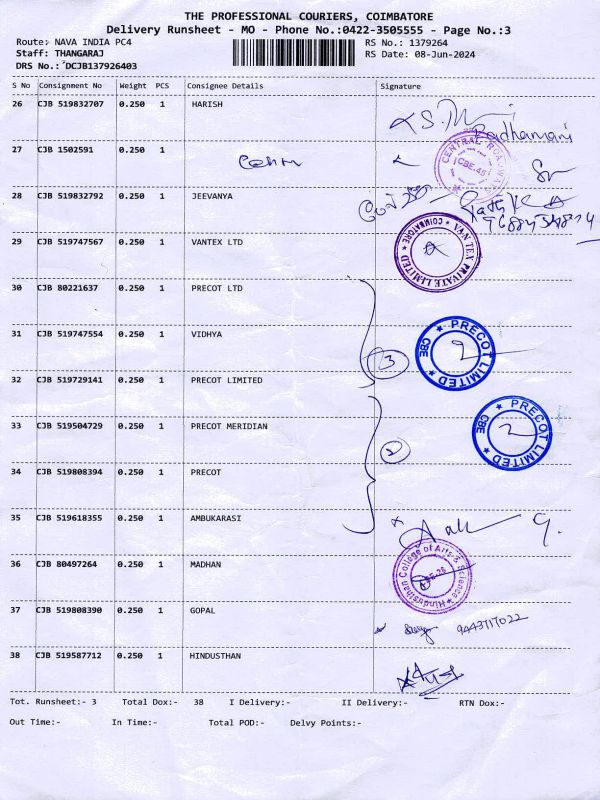 THE PROFESSIONAL COURIERS, COIMBATORE
Delivery Runsheet - MO - Phone No.:0422-3505555 - Page No.:3
Route: NAVA INDIA PC4 RS No.: 1379264
Staff: THANGARAJ RS Date: 08-Jun-2024
DRS No.: DCJB137926403
S No Consignment No Weight PCS Consignee Details Signature
26 CJB 519832707 0.250 1 HARISH
Radhamani
27 CJB 1502591 0.250 1
CBE-45
28 CJB 519832792 0.250 1 JEEVANYA
29 CJB 519747567 0.250 1 VANTEX LTD
VAN TEX PRIVATE LIMITED COIMBATORE
30 CJB 80221637 0.250 1 PRECOT LTD
31 CJB 519747554 0.250 1 VIDHYA
3
PRECOT LIMITED CBE
32 CJB 519729141 0.250 1 PRECOT LIMITED
33 CJB 519504729 0.250 1 PRECOT MERIDIAN
2
PRECOT LIMITED CBE
34 CJB 519808394 0.250 1 PRECOT
35 CJB 519618355 0.250 1 AMBUKARASI
36 CJB 80497264 0.250 1 MADHAN
Hindusthan College of Arts & Science
37 CJB 519808390 0.250 1 GOPAL
9443717022
38 CJB 519587712 0.250 1 HINDUSTHAN
Tot. Runsheet:- 3 Total Dox:- 38 I Delivery:- II Delivery:- RTN Dox:-
Out Time:- In Time:- Total POD:- Delvy Points:-